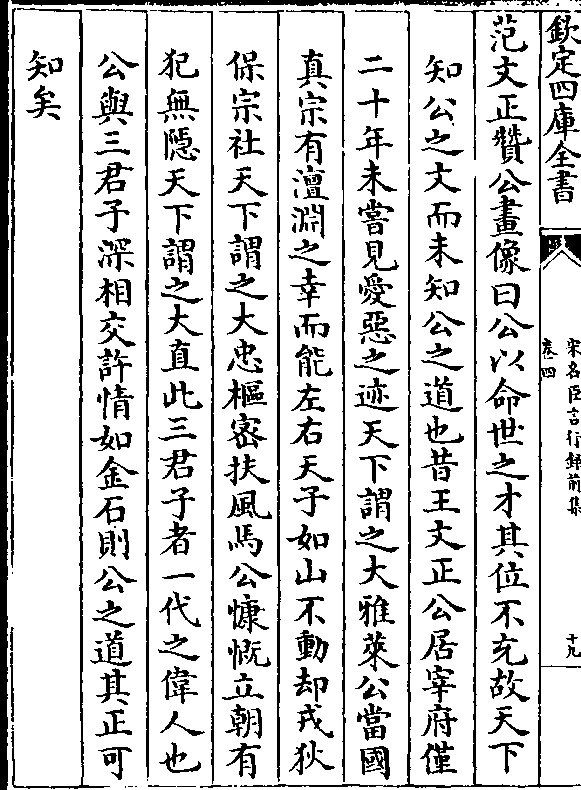 欽定四庫全書
宋名臣言行錄前集
卷四
十九
范文正贊公畫像曰公以命世之才其位不充故天下
知公之文而未知公之道也昔王文正公居宰府僅
二十年未嘗見愛惡之迹天下謂之大雅萊公當國
真宗有澶淵之幸而能左右天子如山不動却戎狄
保宗社天下謂之大忠樞密扶風馬公慷慨立朝有
犯無隱天下謂之大直此三君子者一代之偉人也
公與三君子深相交許情如金石則公之道其正可
知矣